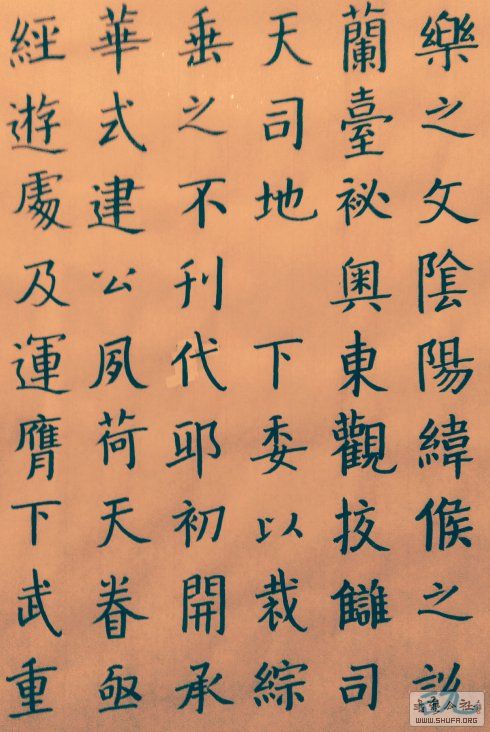 樂之文陰陽緯候之
蘭臺祕奧東觀挍讎司
天司地 下委以裁綜
垂之不刊代耶初開承
華式建公夙荷天眷亟
經遊處及運膺下武重
WWW.SHUFA.ORG